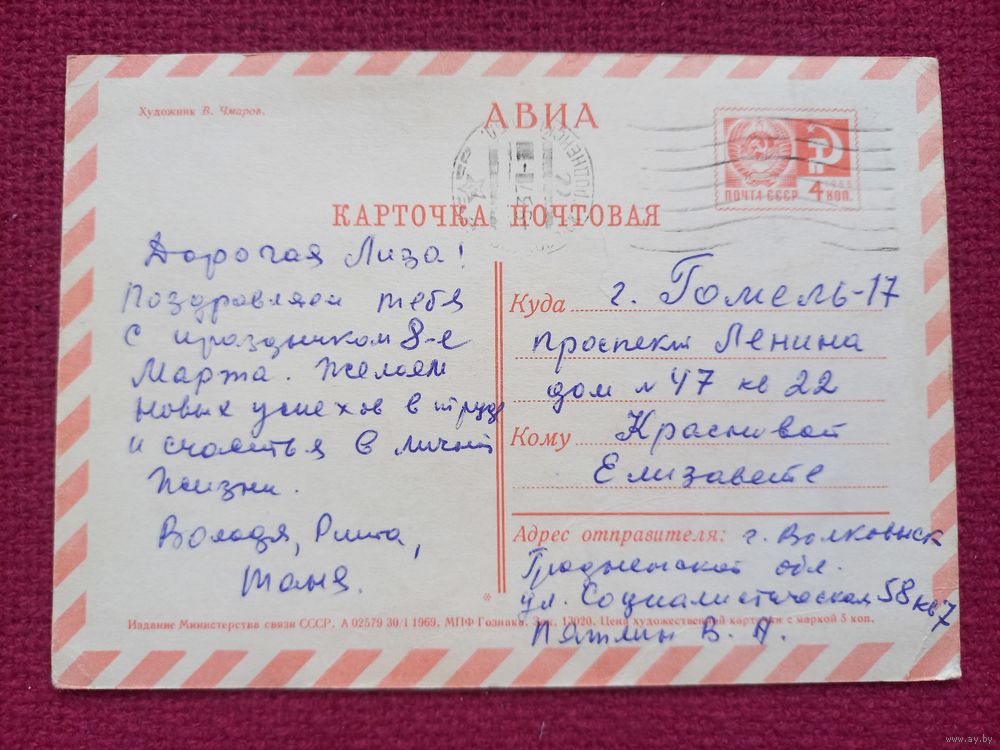 Художник В. Чмаров.
АВИА
ПОЧТА СССР 4 КОП.
КАРТОЧКА ПОЧТОВАЯ
Дорогая Лиза!
Поздравляем тебя
с праздником 8-е
Марта. Желаем
новых успехов в труде
и счастья в личной
жизни.
Володя, Рита,
Таня.
Куда г. Гомель-17
проспект Ленина
дом № 47 кв 22
Кому
Елизавете
Адрес отправителя: г. Волковыск
Гродненской обл.
ул. Социалистическая 58 кв 7
В. А.
Издание Министерства связи СССР. А 02579 30/I 1969. МПФ Гознака. Зак. 13020. Цена художественной карточки с маркой 5 коп.
www.ay.by